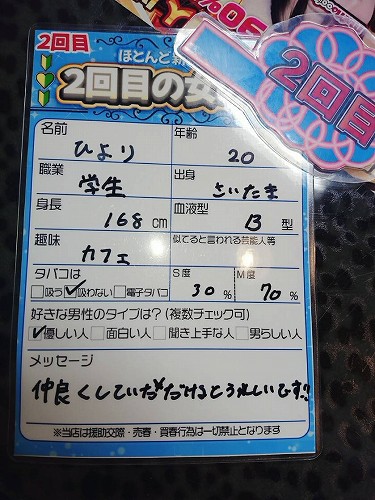 %06
2回目
ほとんど新
2回目の女
2回目
名前
ひより
年齢
20
職業
学生
出身
さいたま
身長
168cm
血液型
B型
趣味
カフェ
似てると言われる芸能人等
タバコは
吸う 吸わない 電子タバコ
S度
30%
M度
70%
好きな男性のタイプは?(複数チェック可)
優しい人 面白い人 聞き上手な人 男らしい人
メッセージ
仲良くしていただけるとうれしいです!!
※当店は援助交際・売春・買春行為は一切禁止となります